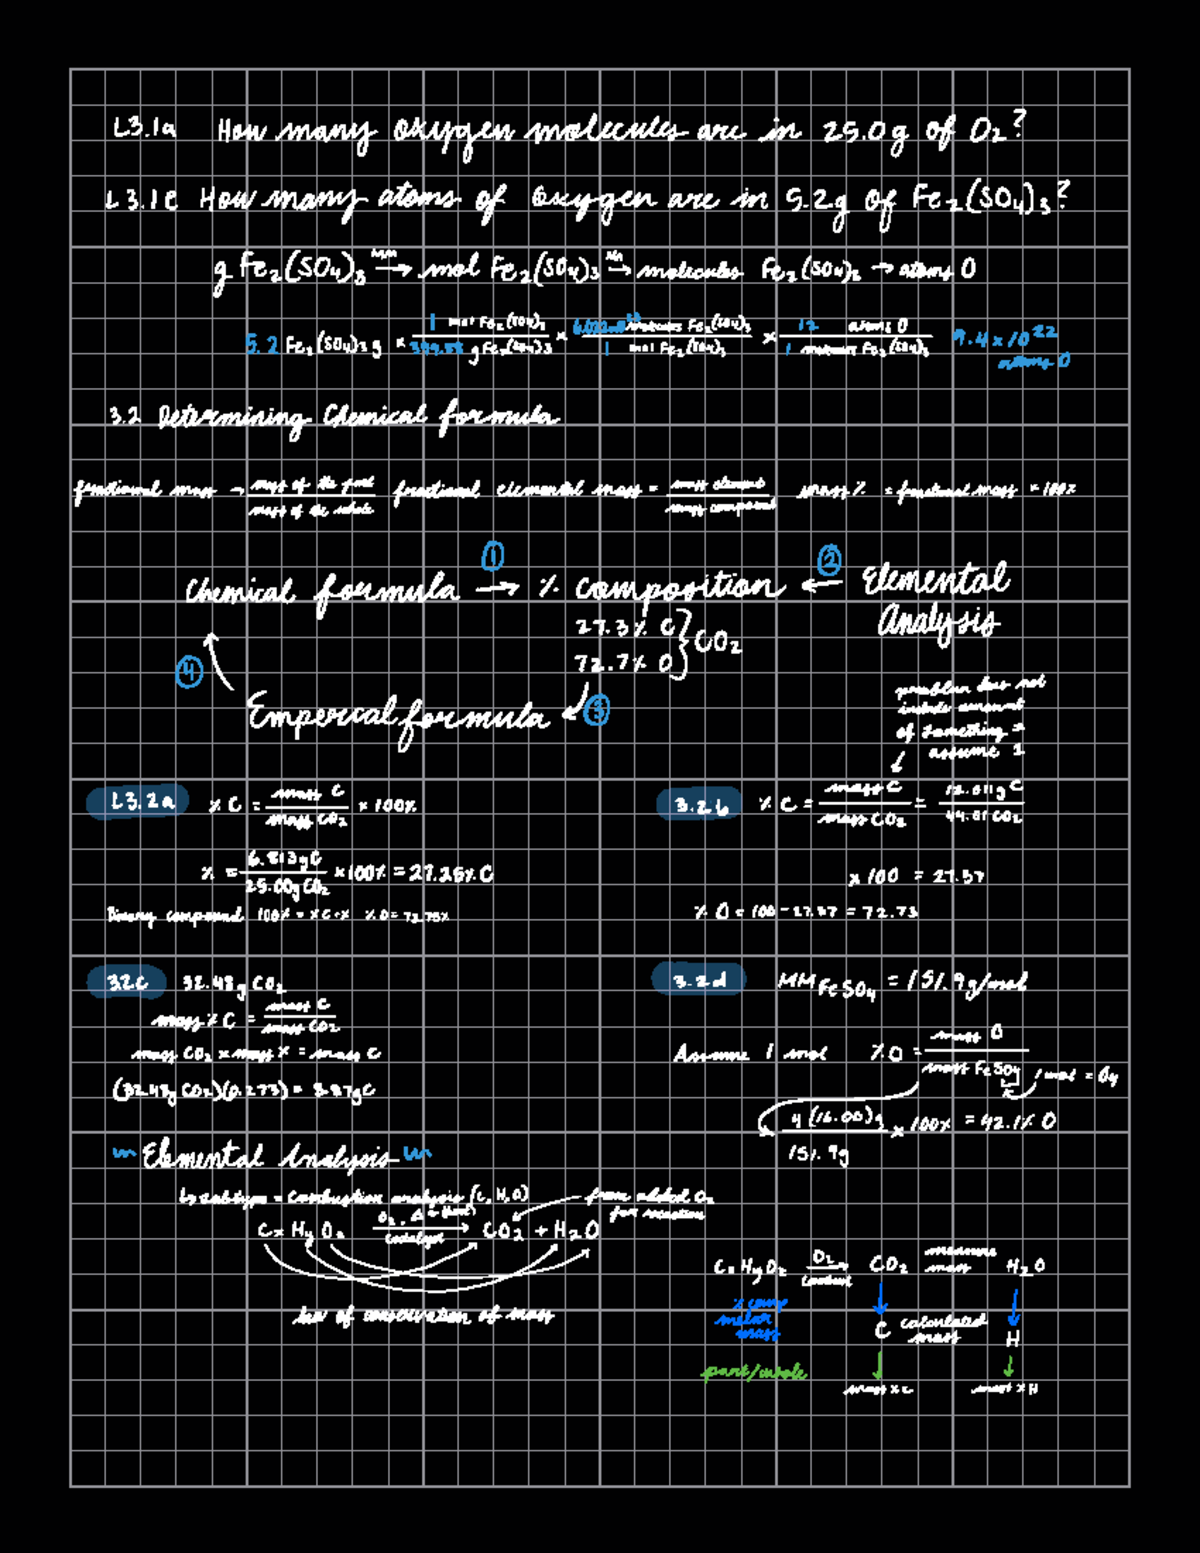 L3.1a How many oxygen molecules are in 25.0g of O₂?
L3.1e How many atoms of oxygen are in 5.2g of Fe₂(SO₄)₃?
g Fe₂(SO₄)₃ →(MM) mol Fe₂(SO₄)₃ → molecules Fe₂(SO₄)₃ → atoms O
5.2 Fe₂(SO₄)₃ g × 1 mol Fe₂(SO₄)₃ / 399.88 g Fe₂(SO₄)₃ × 6.022×10²³ molecules Fe₂(SO₄)₃ / 1 mol Fe₂(SO₄)₃ × 12 atoms O / 1 molecules Fe₂(SO₄)₃ 9.4 x 10²² atoms O
3.2 Determining Chemical formula
fractional mass → mass of the part / mass of the whole fractional elemental mass = mass element / mass compound mass % = fractional mass × 100%
Chemical formula ① → % composition ← ② Elemental Analysis
27.3% C
72.7% O } CO₂
④
Emperical formula ← ③
problem does not
include amount
of something =
assume 1
L3.2a % C = mass C / mass CO₂ × 100%
% = 6.813g C / 25.00g CO₂ × 100% = 27.25% C
Binary compound 100% = % C + % % O = 72.75%
3.2b % C = mass C / mass CO₂ = 12.011g C / 44.01 CO₂
x 100 = 27.37
% O = 100 - 27.27 = 72.73
3.2c 32.48g CO₂
mass % C = mass C / mass CO₂
mass CO₂ × mass % = mass C
(32.48g CO₂)(0.273) = 8.87g C
3.2d MM FeSO₄ = 151.9g/mol
Assume 1 mol % O = mass O / mass FeSO₄ 1 mol = O₄
4(16.00)g / 151.9g × 100% = 42.1% O
~ Elemental Analysis ~
↳ subtype = combustion analysis (C, H, O) from added O₂ for reaction
Cx Hy Oz →(O₂, Δ = (heat) / catalyst) CO₂ + H₂O
law of conservation of mass
Cx Hy Oz →(O₂ / combust) CO₂ measure mass H₂O
% comp
molar
mass
C calculated mass H
part/whole
mass % C mass % H